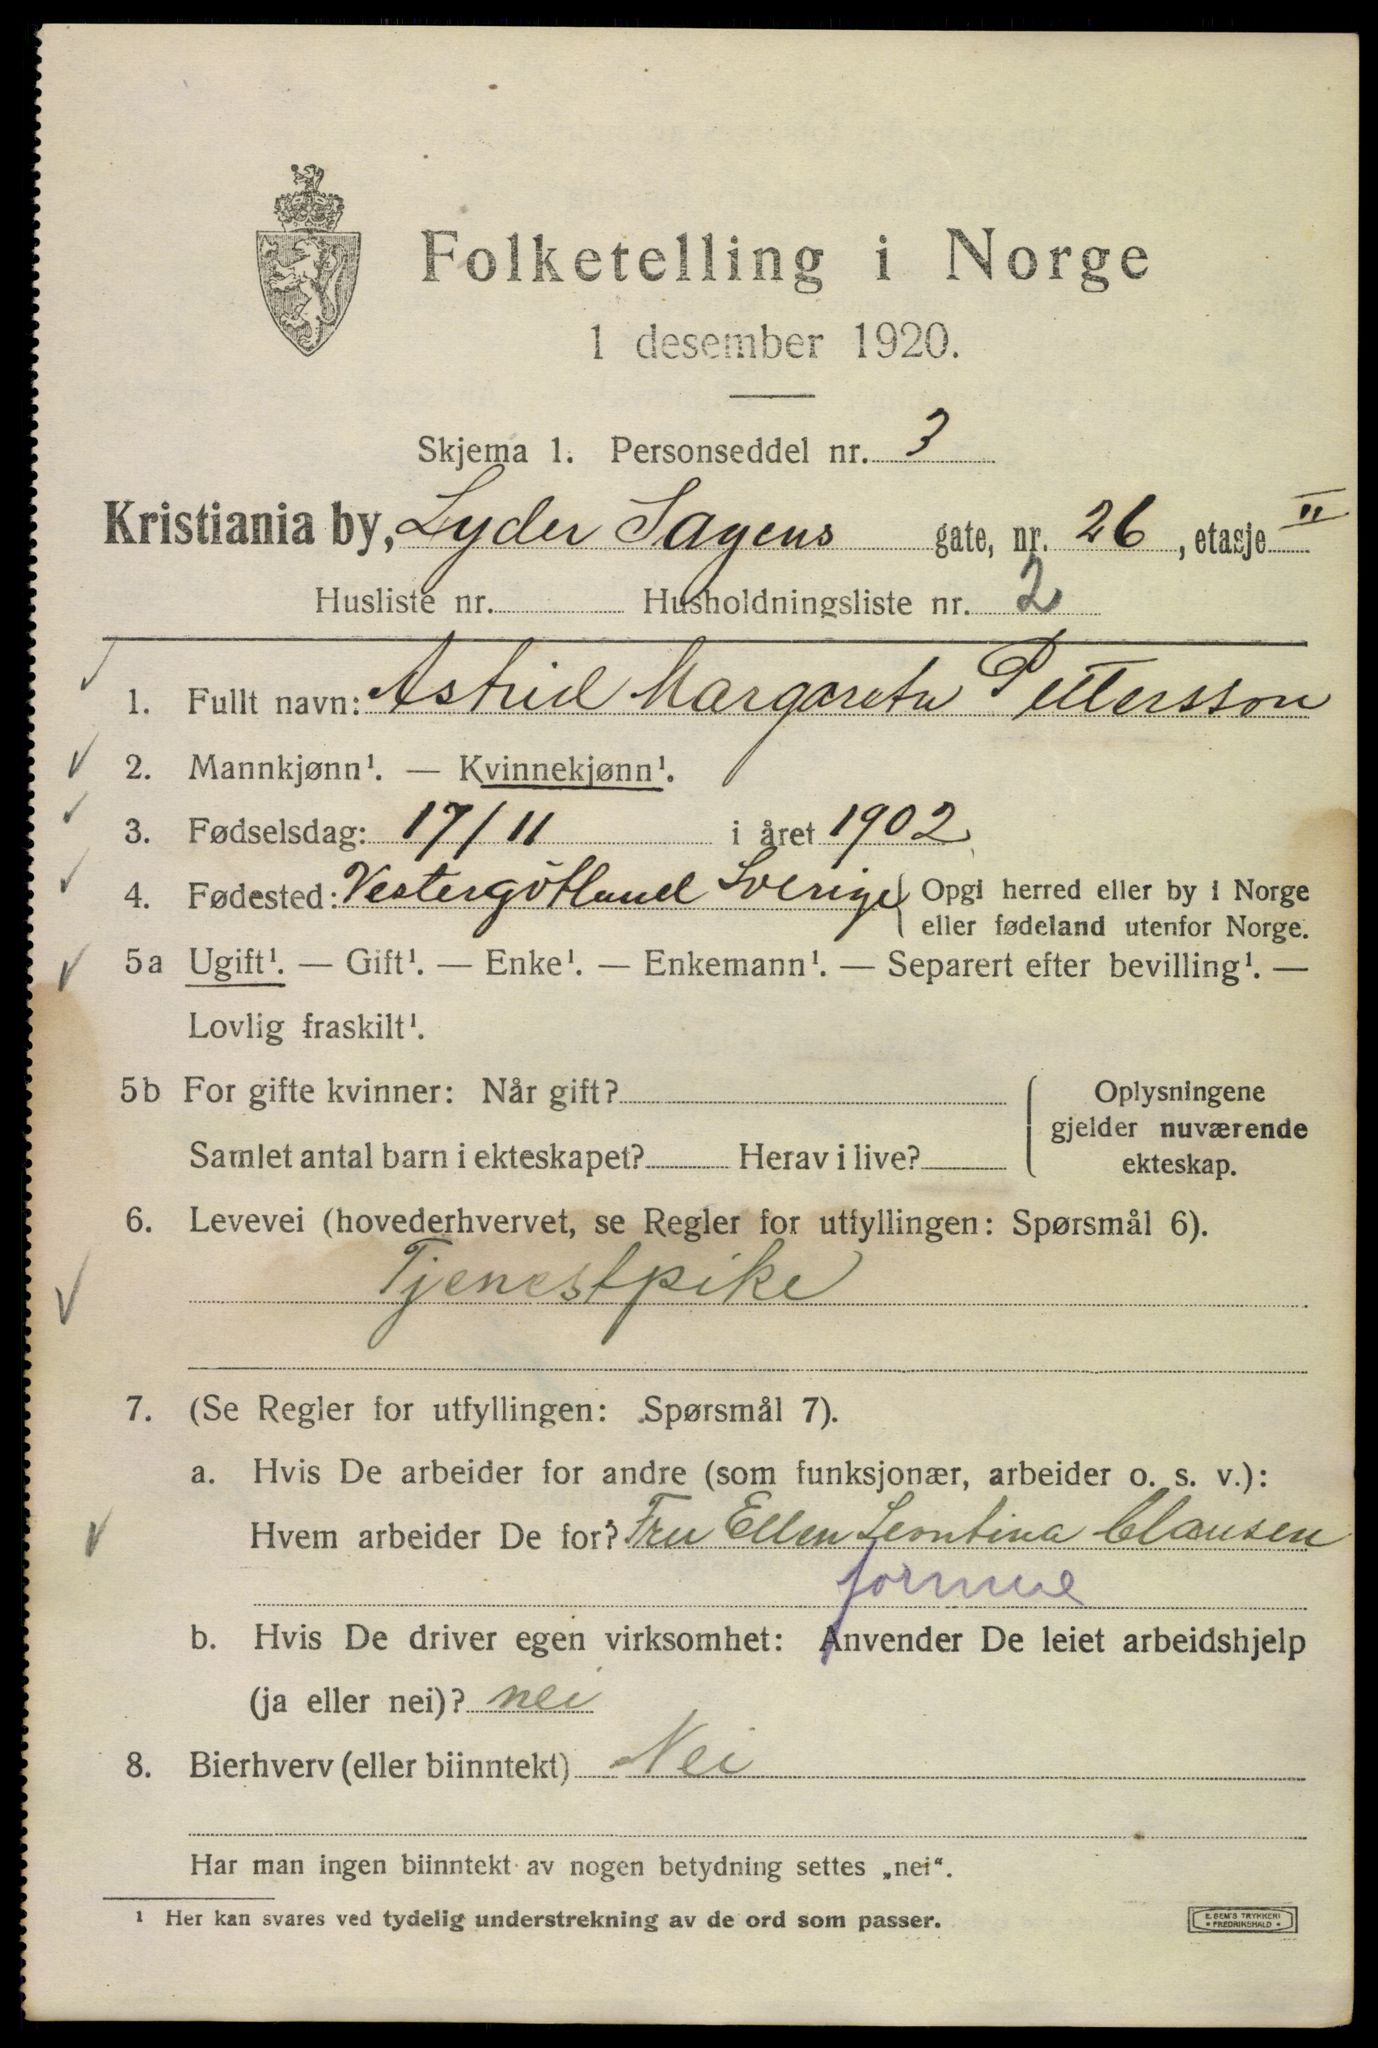 Folketelling i Norge
1 desember 1920.
Skjema 1. Personseddel nr. 3
Kristiania by, Lyder Sagens gate, nr. 26, etasje II
Husliste nr. Husholdningsliste nr. 2
1. Fullt navn: Astrid Margareta Pettersson
2. Mannkjønn¹. — Kvinnekjønn¹.
3. Fødselsdag: 17/11 i året 1902
4. Fødested: Vestergötland Sverige Opgi herred eller by i Norge
eller fødeland utenfor Norge.
5a Ugift¹. — Gift¹. — Enke¹. — Enkemann¹. — Separert efter bevilling¹. —
Lovlig fraskilt¹.
5b For gifte kvinner: Når gift? Oplysningene
gjelder nuværende
Samlet antal barn i ekteskapet? Herav i live? ekteskap.
6. Levevei (hovederhvervet, se Regler for utfyllingen: Spørsmål 6).
Tjenestpike
7. (Se Regler for utfyllingen: Spørsmål 7).
a. Hvis De arbeider for andre (som funksjonær, arbeider o. s. v.):
Hvem arbeider De for? Fru Ellen Leontina Clausen
formue
b. Hvis De driver egen virksomhet: Anvender De leiet arbeidshjelp
(ja eller nei)? nei
8. Bierhverv (eller biinntekt) Nei
Har man ingen biinntekt av nogen betydning settes „nei“.
¹ Her kan svares ved tydelig understrekning av de ord som passer.
E. SEM'S TRYKKERI
• FREDRIKSHALD •